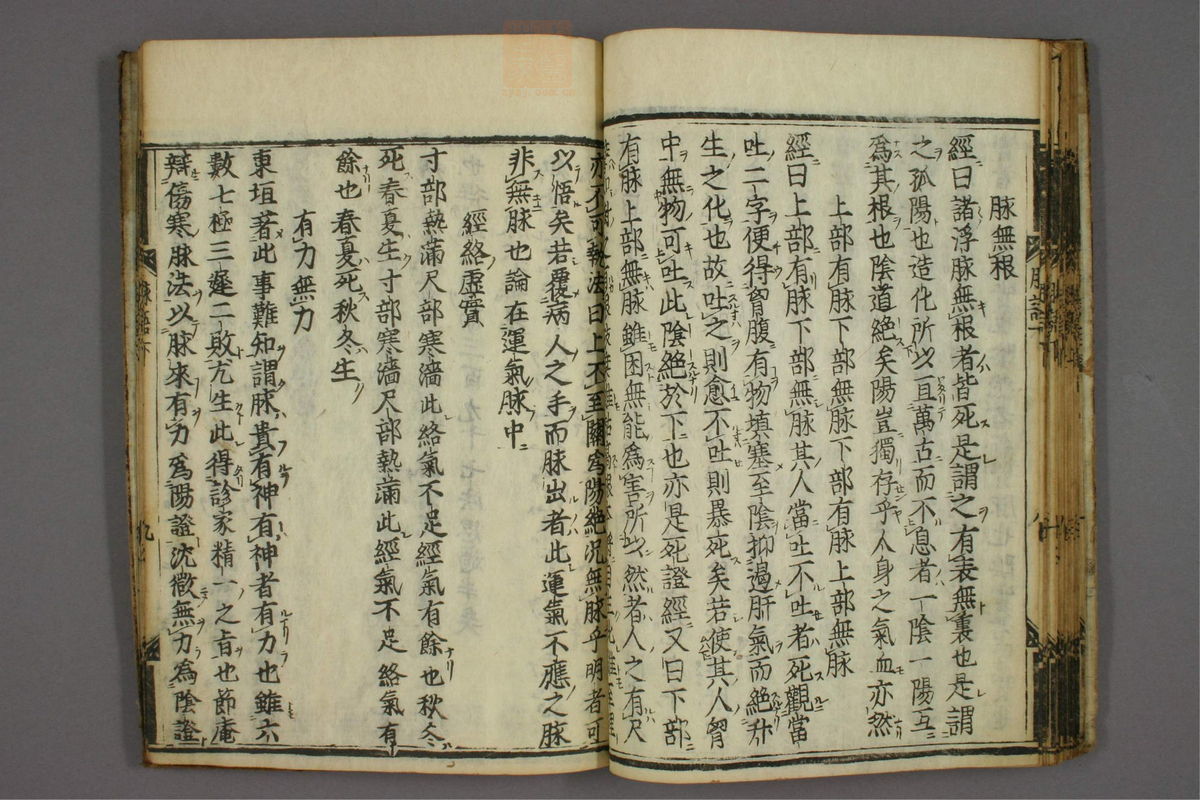 脉無根
經曰諸浮脉無根者皆死是謂之有表無裏也是謂
之孤陽也造化所以亘萬古而不息者一陰一陽互
爲其根也陰道絶矣陽豈獨存乎人身之氣血亦然
上部有脉下部無脉下部有脉上部無脉
經曰上部有脉下部無脉其人當吐不吐者死觀當
吐二字便得胷腹有物填塞至陰抑遏肝氣而絶升
生之化也故吐之則愈不吐則暴死矣若使其人胷
中無物可吐此陰絶於下也亦是死證經又曰下部
有脉上部無脉雖困無能爲害所以然者人之有尺
亦不可執法曰上不至關爲陽絶况無脉乎明者可
以悟矣若覆病人之手而脉出者此運氣不應之脉
非無脉也論在運氣脉中
經絡虛實
寸部熱滿尺部寒濇此絡氣不足經氣有餘也秋冬
死春夏生寸部寒濇尺部熱滿此經氣不足絡氣有
餘也春夏死秋冬生
有力無力
東垣著此事難知謂脉貴有神有神者有力也雖六
數七極三遲二敗尤生此得診家精一之旨也節庵
辯傷寒脉法以脉來有力爲陽證沈微無力爲陰證
脉語下
九